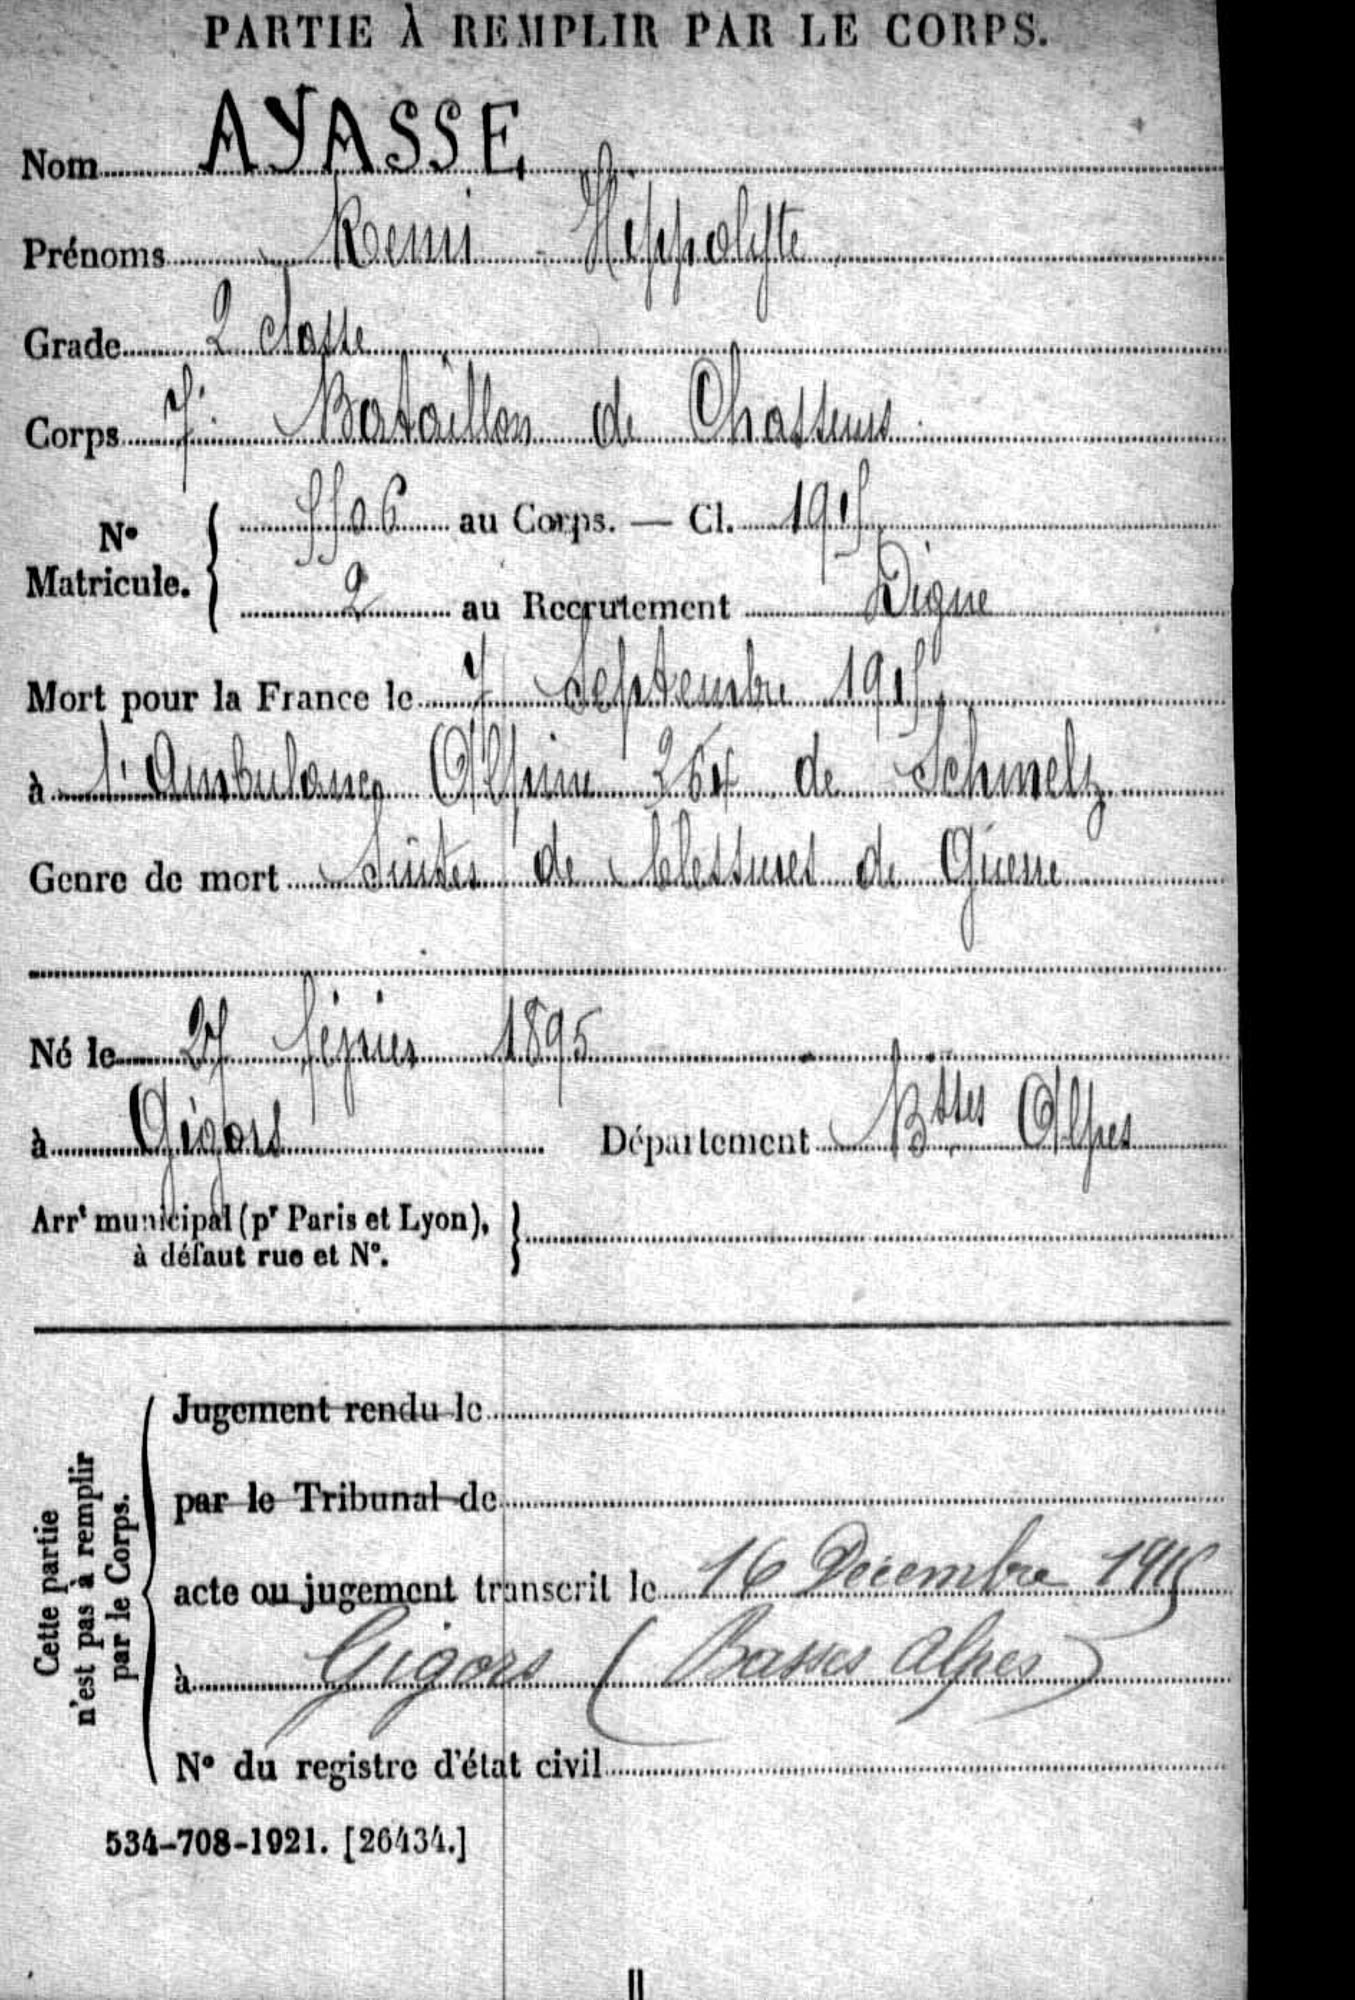 PARTIE À REMPLIR PAR LE CORPS.
Nom AYASSE
Prénoms Remi - Hippolyte
Grade 2 classe
Corps 7e Bataillon de Chasseurs
No Matricule. { 5506 au Corps. — Cl. 1915
2 au Recrutement Digne
Mort pour la France le 7 Septembre 1915
à l'Ambulance Alpine 264 de Schmelz
Genre de mort Suites de blessures de Guerre
Né le 27 février 1895
à Gigors Département Bsses Alpes
Arrt municipal (pr Paris et Lyon),
à défaut rue et No. }
Cette partie
n'est pas à remplir
par le Corps.
Jugement rendu le
par le Tribunal de
acte ou jugement transcrit le 16 Décembre 1915
à Gigors (Basses Alpes)
No du registre d'état civil
534-708-1921. [26434.]